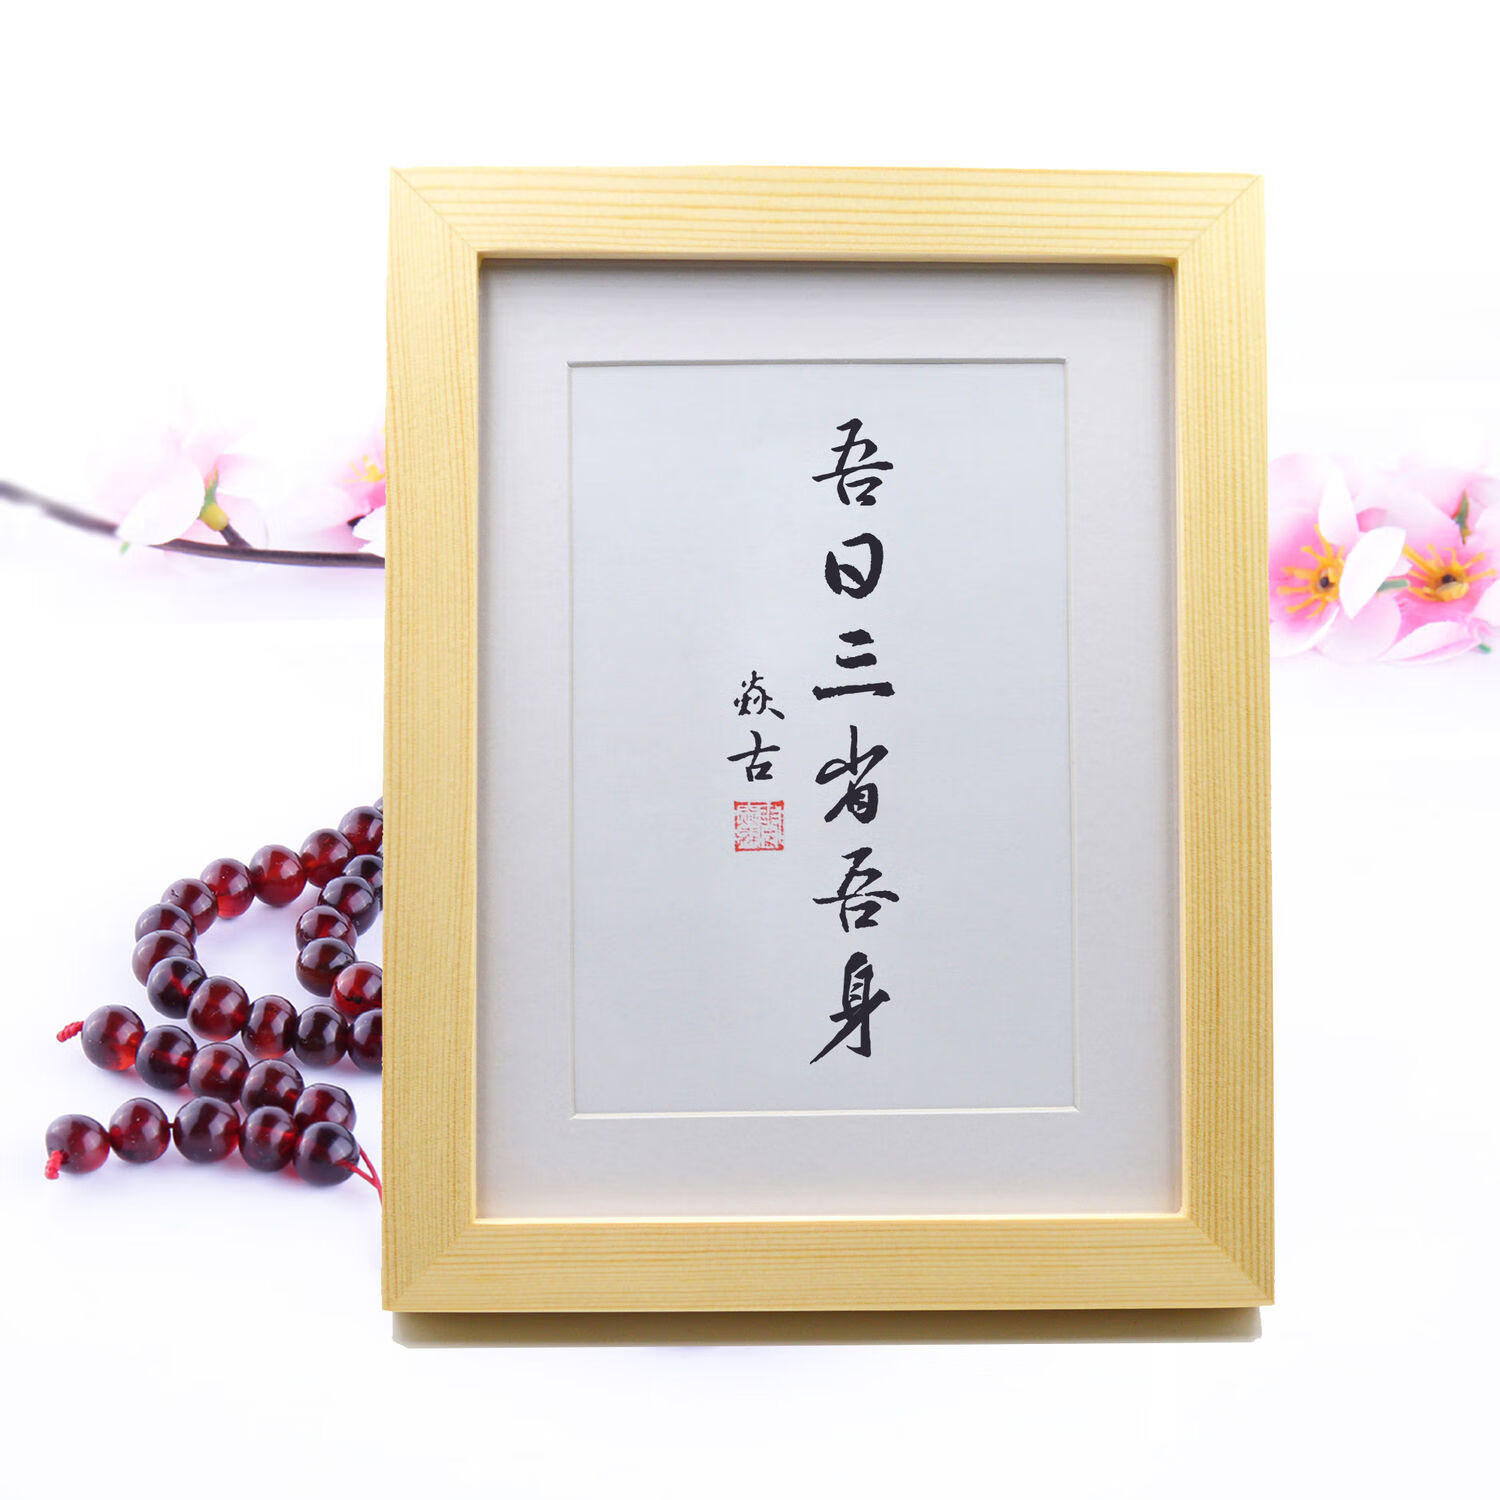 吾日三省吾身
焱古